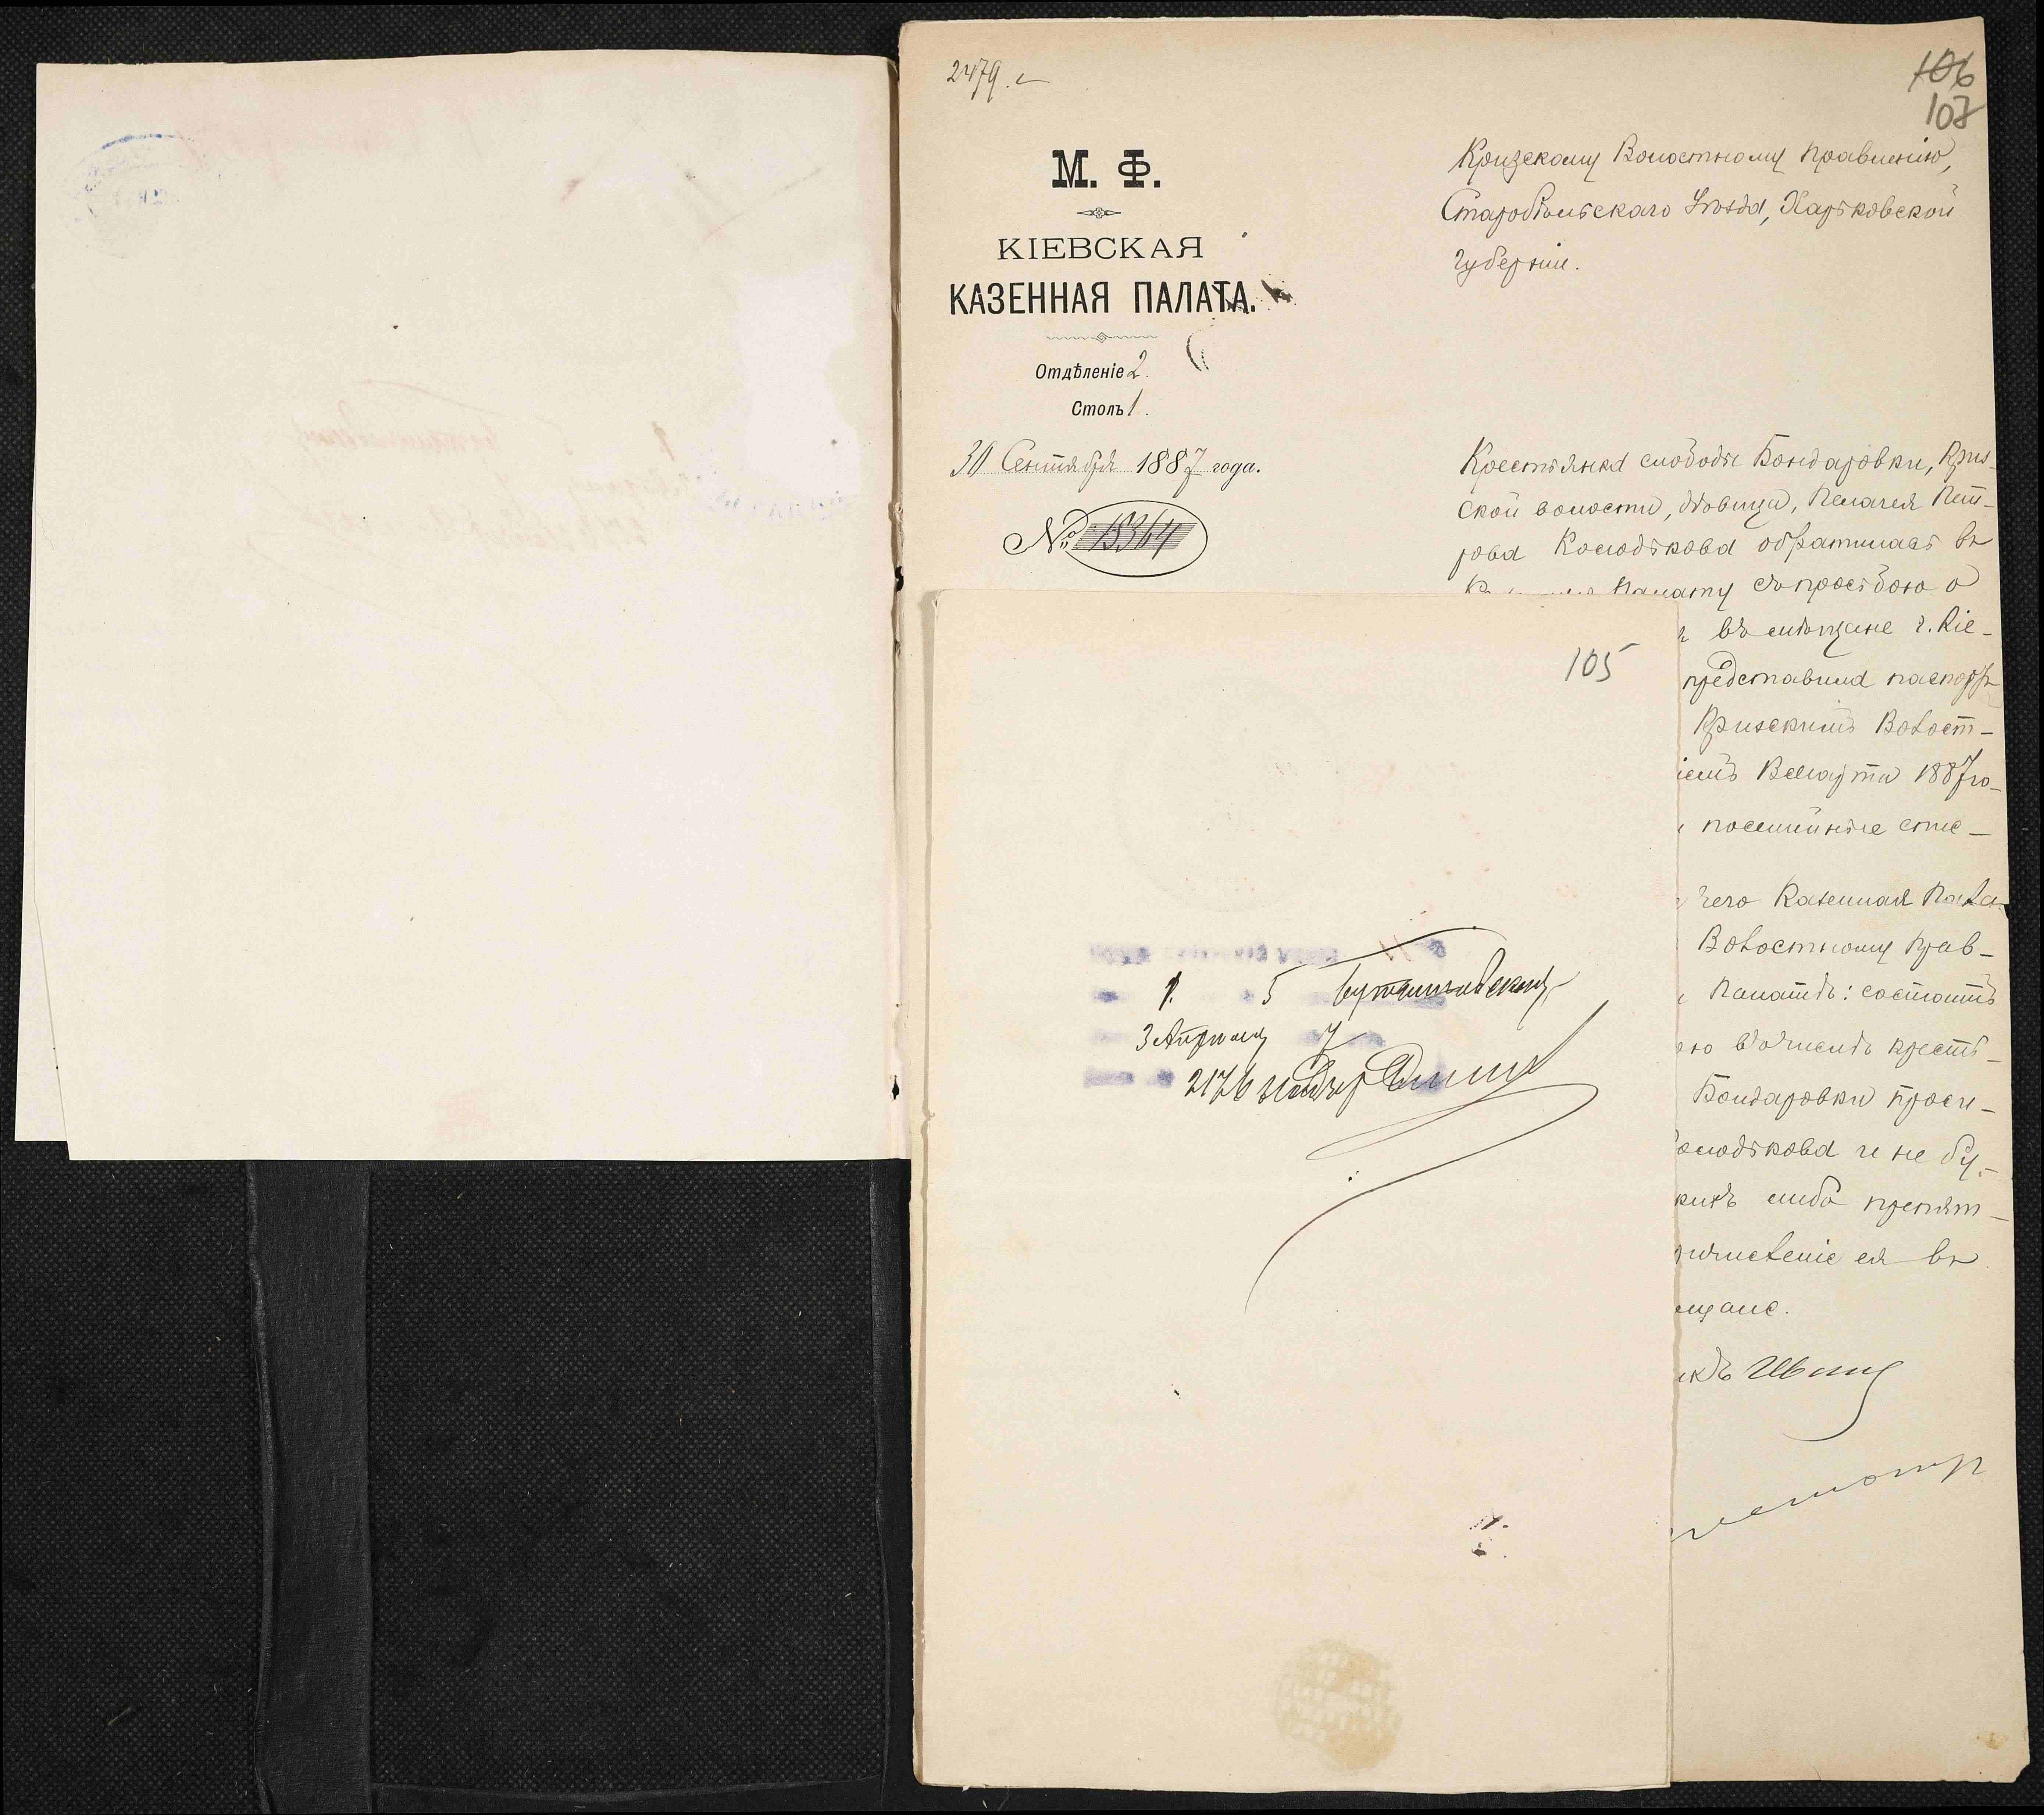 2479.
106
107
М. Ф.
КІЕВСКАЯ
КАЗЕННАЯ ПАЛАТА.
Отдѣленіе 2.
Столъ 1.
30 Сентября 1887 года.
№ 18364
Кризскому Волостному Правленію,
Старобѣльскаго Уѣзда, Харьковской
губерніи.
Крестьянка слободы Бондаровки, Криз-
ской волости, дѣвица, Пелагея Пет-
рова Колодькова обратилась въ
Палату съ просьбою о
въ мѣщане г. Кіе-
представила паспортъ
Кризскимъ Волост-
іемъ Марта 1887 го-
посемейные спис-
чего Казенная Пала-
Волостному Прав-
Палатѣ: состоитъ
крестъ-
Бондаровки проси-
олодькова и не бу-
кихъ либо препят-
ричисленіе ея въ
щане.
105
1. 5
3 Апрѣля 7
2176